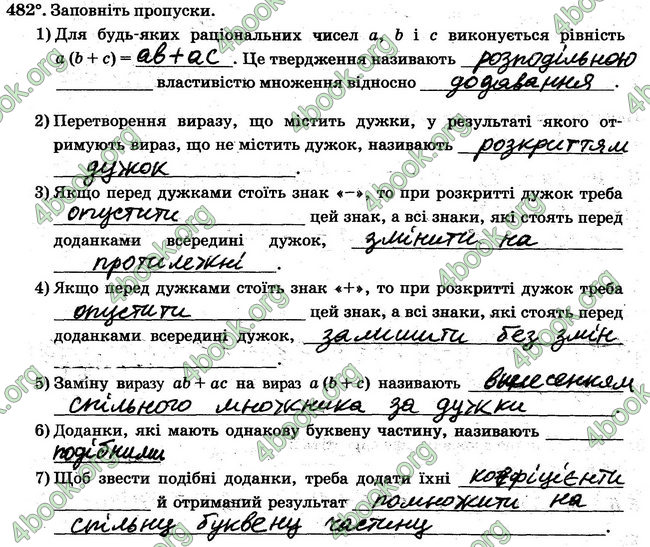 482°. Заповніть пропуски.
1) Для будь-яких раціональних чисел a, b і c виконується рівність
a (b + c) = ab+ac. Це твердження називають розподільною
властивістю множення відносно додавання.
2) Перетворення виразу, що містить дужки, у результаті якого от-
римують вираз, що не містить дужок, називають розкриттям
дужок.
3) Якщо перед дужками стоїть знак «−», то при розкритті дужок треба
опустити цей знак, а всі знаки, які стоять перед
доданками всередині дужок, змінити на
протилежні.
4) Якщо перед дужками стоїть знак «+», то при розкритті дужок треба
опустити цей знак, а всі знаки, які стоять перед
доданками всередині дужок, залишити без змін
.
5) Заміну виразу ab + ac на вираз a (b + c) називають винесенням
спільного множника за дужки.
6) Доданки, які мають однакову буквену частину, називають
подібними
7) Щоб звести подібні доданки, треба додати їхні коефіцієнти
й отриманий результат помножити на
спільну буквену частину.
4book.org